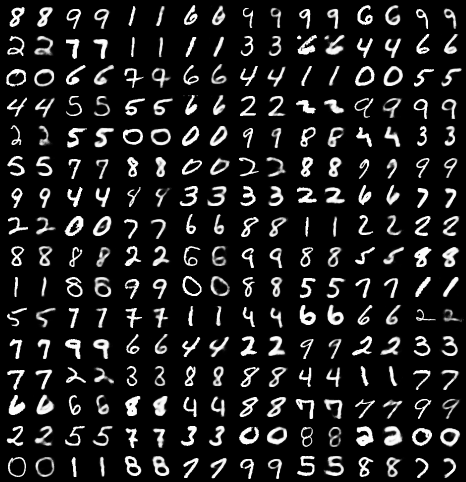 8 8 9 9 1 1 6 6 9 9 9 9 6 6 9 9
2 2 7 7 1 1 1 1 3 3 6 6 4 4 6 6
0 0 6 6 7 7 6 6 4 4 1 1 0 0 5 5
4 4 5 5 5 5 6 6 2 2 2 2 9 9 9 9
2 2 5 5 0 0 0 0 9 9 8 8 4 4 3 3
5 5 7 7 8 8 0 0 2 2 8 8 9 9 9 9
9 9 4 4 4 4 3 3 3 3 2 2 6 6 7 7
2 2 0 0 7 7 6 6 8 8 1 1 2 2 2 2
8 8 8 8 2 2 6 6 9 9 8 8 5 5 8 8
1 1 8 8 9 9 0 0 8 8 5 5 7 7 1 1
5 5 7 7 7 7 1 1 4 4 6 6 6 6 2 2
7 7 9 9 6 6 4 4 2 2 9 9 2 2 3 3
7 7 2 2 3 3 8 8 8 8 4 4 1 1 7 7
6 6 6 6 8 8 4 4 8 8 7 7 7 7 9 9
2 2 5 5 7 7 3 3 0 0 8 8 2 2 0 0
0 0 1 1 8 8 7 7 9 9 5 5 8 8 7 7